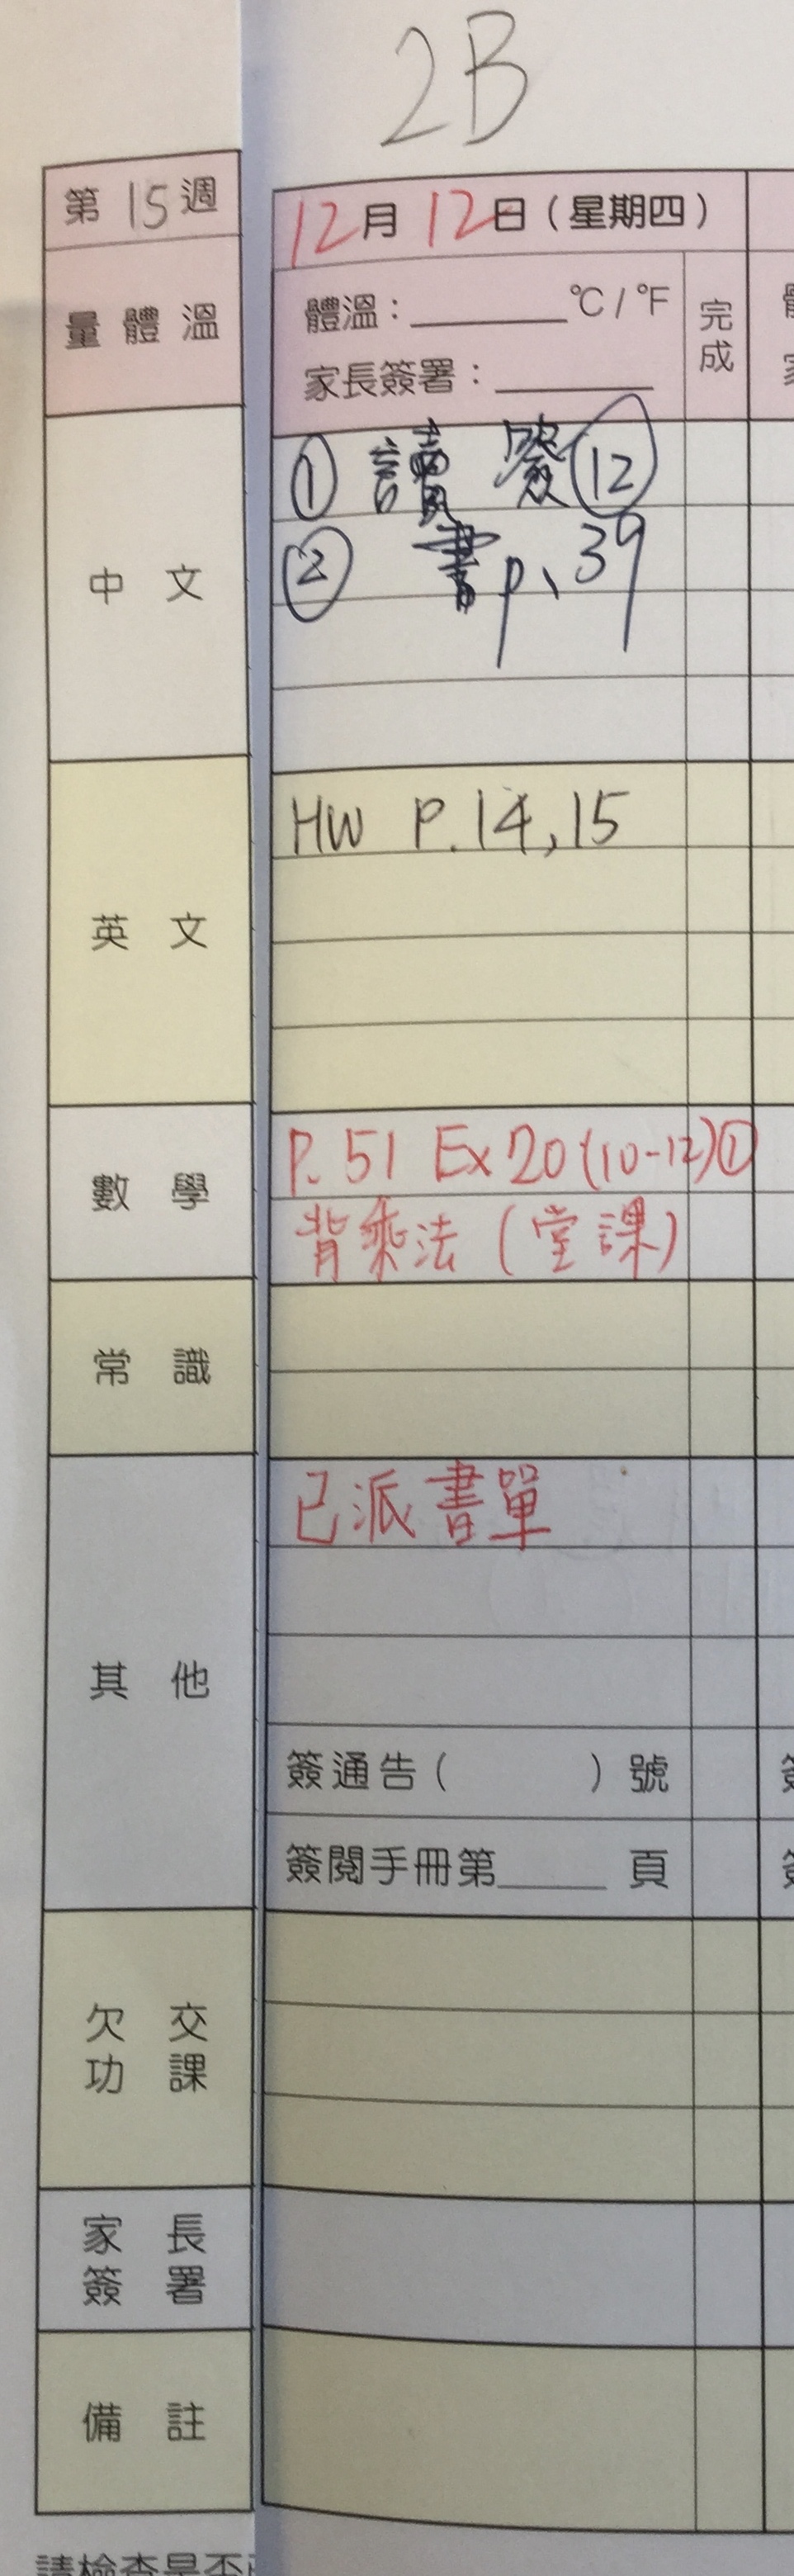 2B
第15週
12月12日(星期四)
量體溫
體溫:______℃/℉
家長簽署:______
完成
中文
① 讀 ⑫
② 書p、39
英文
HW P.14,15
數學
P.51 Ex20(10-12)①
背乘法(堂課)
常識
其他
已派書單
簽通告( )號
簽閱手冊第_____頁
欠交功課
家長簽署
備註
請檢查是否